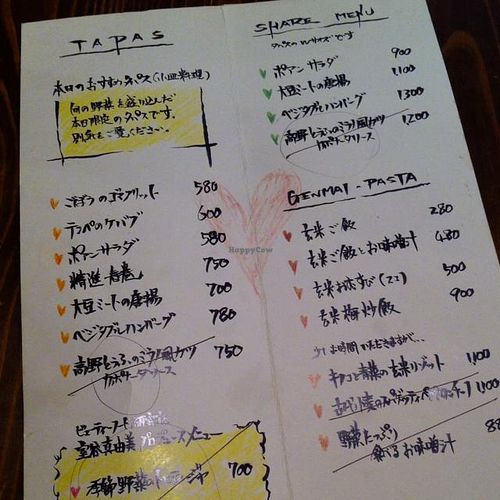 TAPAS
本日のおすすめタパス(小皿料理)
旬の野菜を盛り込んだ
本日限定のタパスです。
別紙をご覧ください。
ごぼうのゴマフリット 580
テンペのケバブ 600
ポアンサラダ 580
精進春巻 750
大豆ミートの唐揚 700
ベジタブルハンバーグ 780
高野とうふのミラノ風カツ 750
ビューティーフード研究家
メニュー
季節野菜の 700
SHARE MENU
タパスのLサイズです
ポアンサラダ 900
大豆ミートの唐揚 1100
ベジタブルハンバーグ 1300
高野とうふのミラノ風カツ 1200
GENMAI-PASTA
玄米ご飯 280
玄米ご飯とお味噌汁 480
玄米おむすび(2コ) 500
玄米梅炒飯 900
少しお時間いただきますが、、
キノコと青菜の玄米リゾット 1,100
1,100
野菜たっぷり
食べるお味噌汁
HappyCow